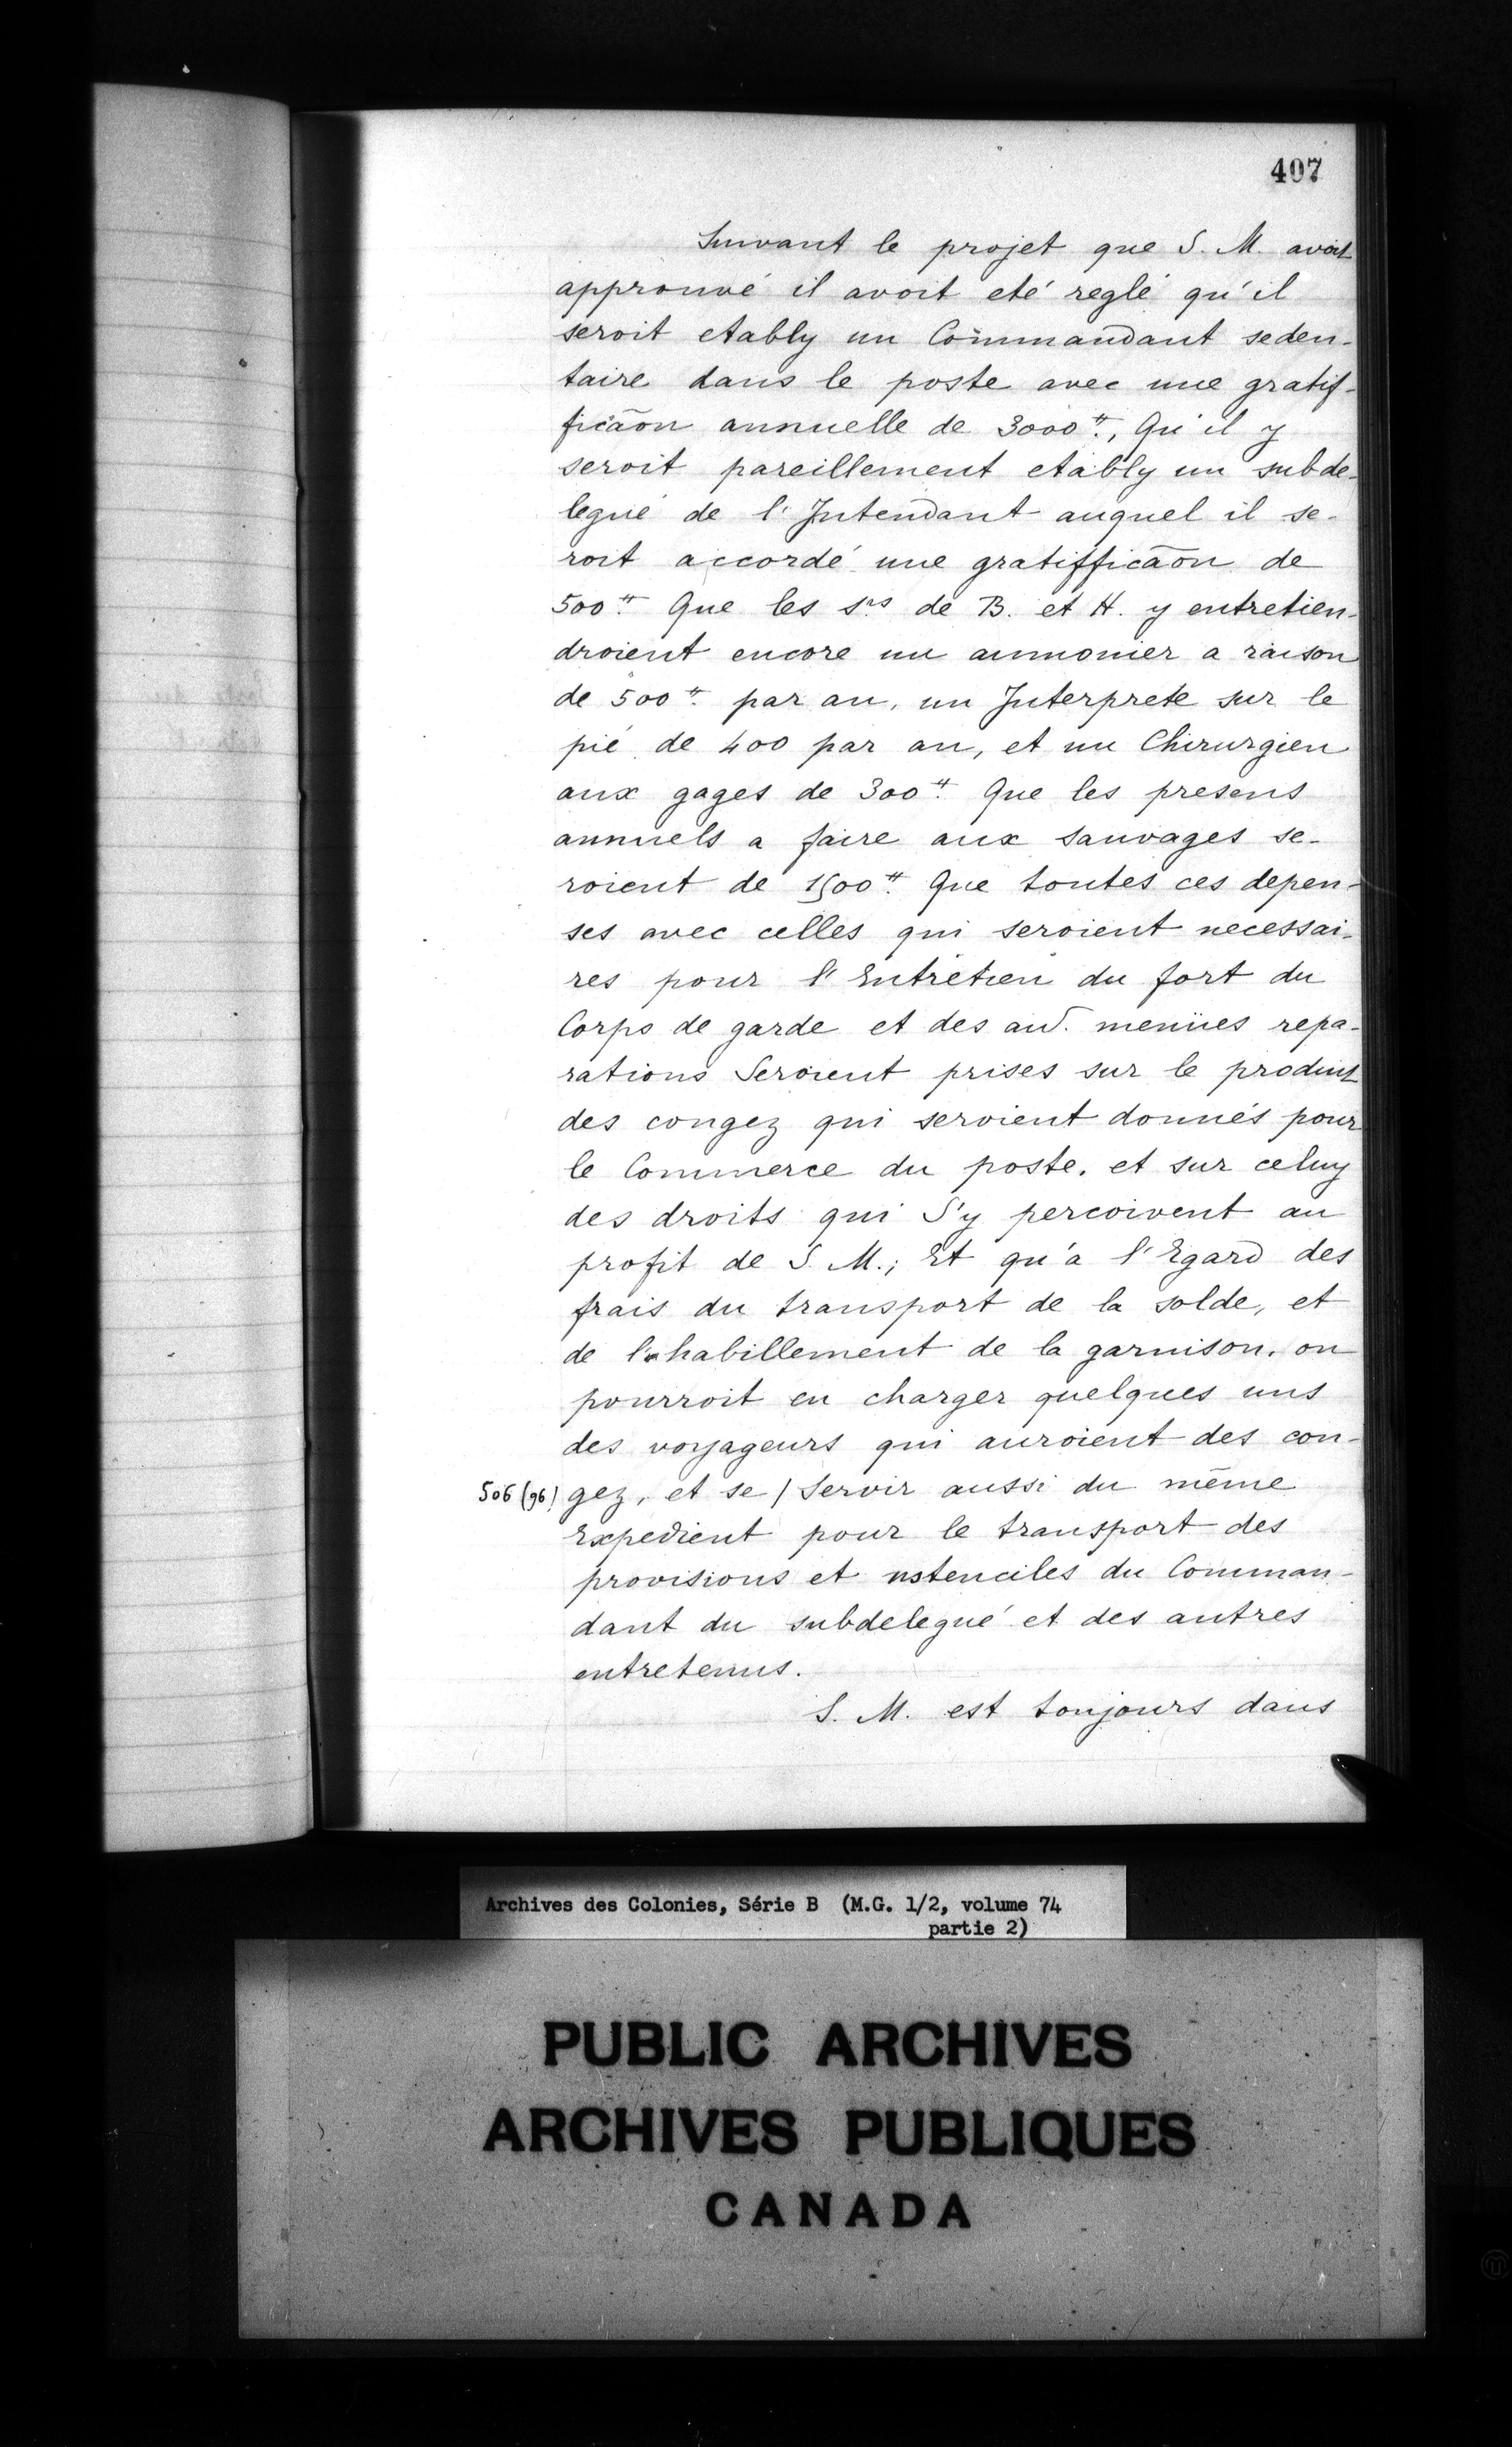 407
Suivant le projet que S. M. avoit
approuvé il avoit eté reglé qu'il
seroit etably un Commandant seden-
taire dans le poste avec une gratif-
ficãon annuelle de 3000ᵗᵗ., Qu'il y
seroit pareillement etably un subde-
legué de l'Intendant auquel il se-
roit accordé une gratifficãon de
500ᵗᵗ Que les s.rs de B. et H. y entretien-
droient encore un aumonier a raison
de 500ᵗᵗ. par an, un Interprete sur le
pié de 400 par an, et un Chirurgien
aux gages de 300ᵗᵗ. Que les presens
annuels a faire aux sauvages se-
roient de 1500ᵗᵗ. Que toutes ces depen-
ses avec celles qui seroient necessai-
res pour l'Entretien du fort du
Corps de garde et des aud. menües repa-
rations Seroient prises sur le produit
des congez qui seroient donnés pour
le Commerce du poste. et sur celuy
des droits qui S'y percoivent au
profit de S. M.; Et qu'a l'Egard des
frais du transport de la solde, et
de l'habillement de la garnison. on
pourroit en charger quelques uns
des voyageurs qui auroient des con-
506 (96) gez, et se / Servir aussi du même
Expedient pour le transport des
provisions et ustenciles du Comman-
dant du subdelegué et des autres
entretenus.
S. M. est toujours dans
Archives des Colonies, Série B (M.G. 1/2, volume 74
partie 2)
PUBLIC ARCHIVES
ARCHIVES PUBLIQUES
CANADA